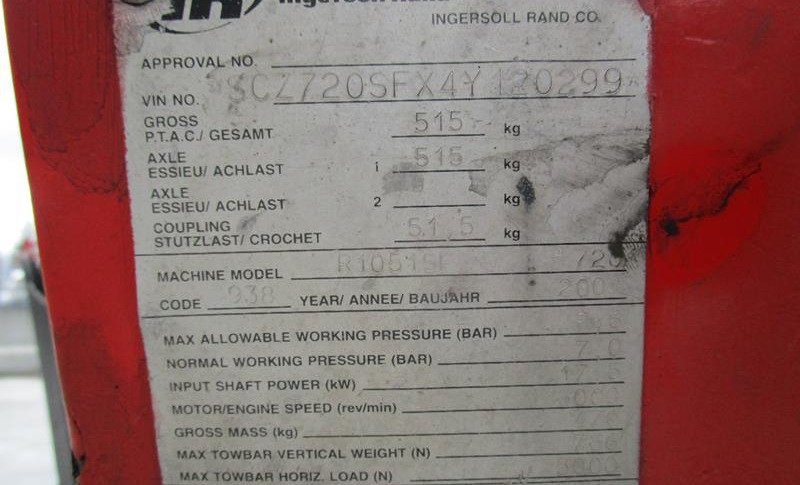 INGERSOLL RAND CO.
APPROVAL NO.
VIN NO. SCZ720SFX4Y120299
GROSS
P.T.A.C./ GESAMT 515 kg
AXLE
ESSIEU/ ACHLAST 1 515 kg
AXLE
ESSIEU/ ACHLAST 2 kg
COUPLING
STUTZLAST/ CROCHET 51,5 kg
MACHINE MODEL 720
CODE 938 YEAR/ ANNEE/ BAUJAHR
MAX ALLOWABLE WORKING PRESSURE (BAR)
NORMAL WORKING PRESSURE (BAR) 7,0
INPUT SHAFT POWER (kW)
MOTOR/ENGINE SPEED (rev/min)
GROSS MASS (kg)
MAX TOWBAR VERTICAL WEIGHT (N)
MAX TOWBAR HORIZ. LOAD (N)